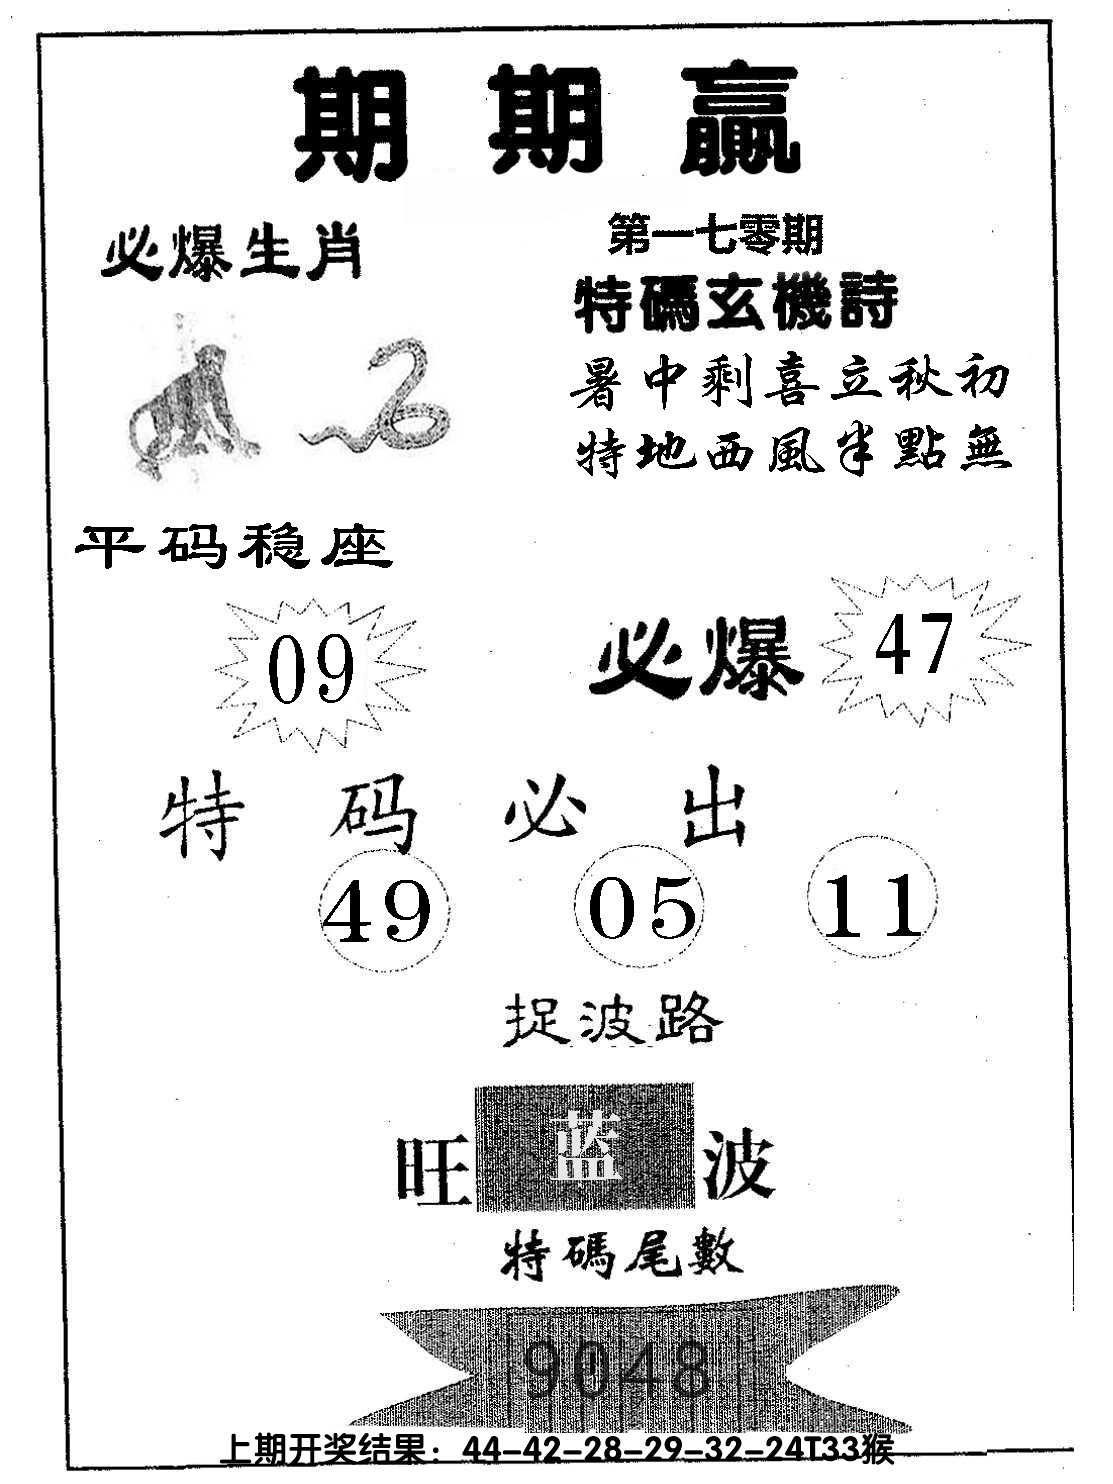 期期贏
必爆生肖
第一七零期
特碼玄機詩
暑中剩喜立秋初
特地西風半點無
平码稳座
09
必爆 47
特码必出
49 05 11
捉波路
旺 蓝 波
特碼尾數
9048
上期开奖结果：44-42-28-29-32-24T33猴